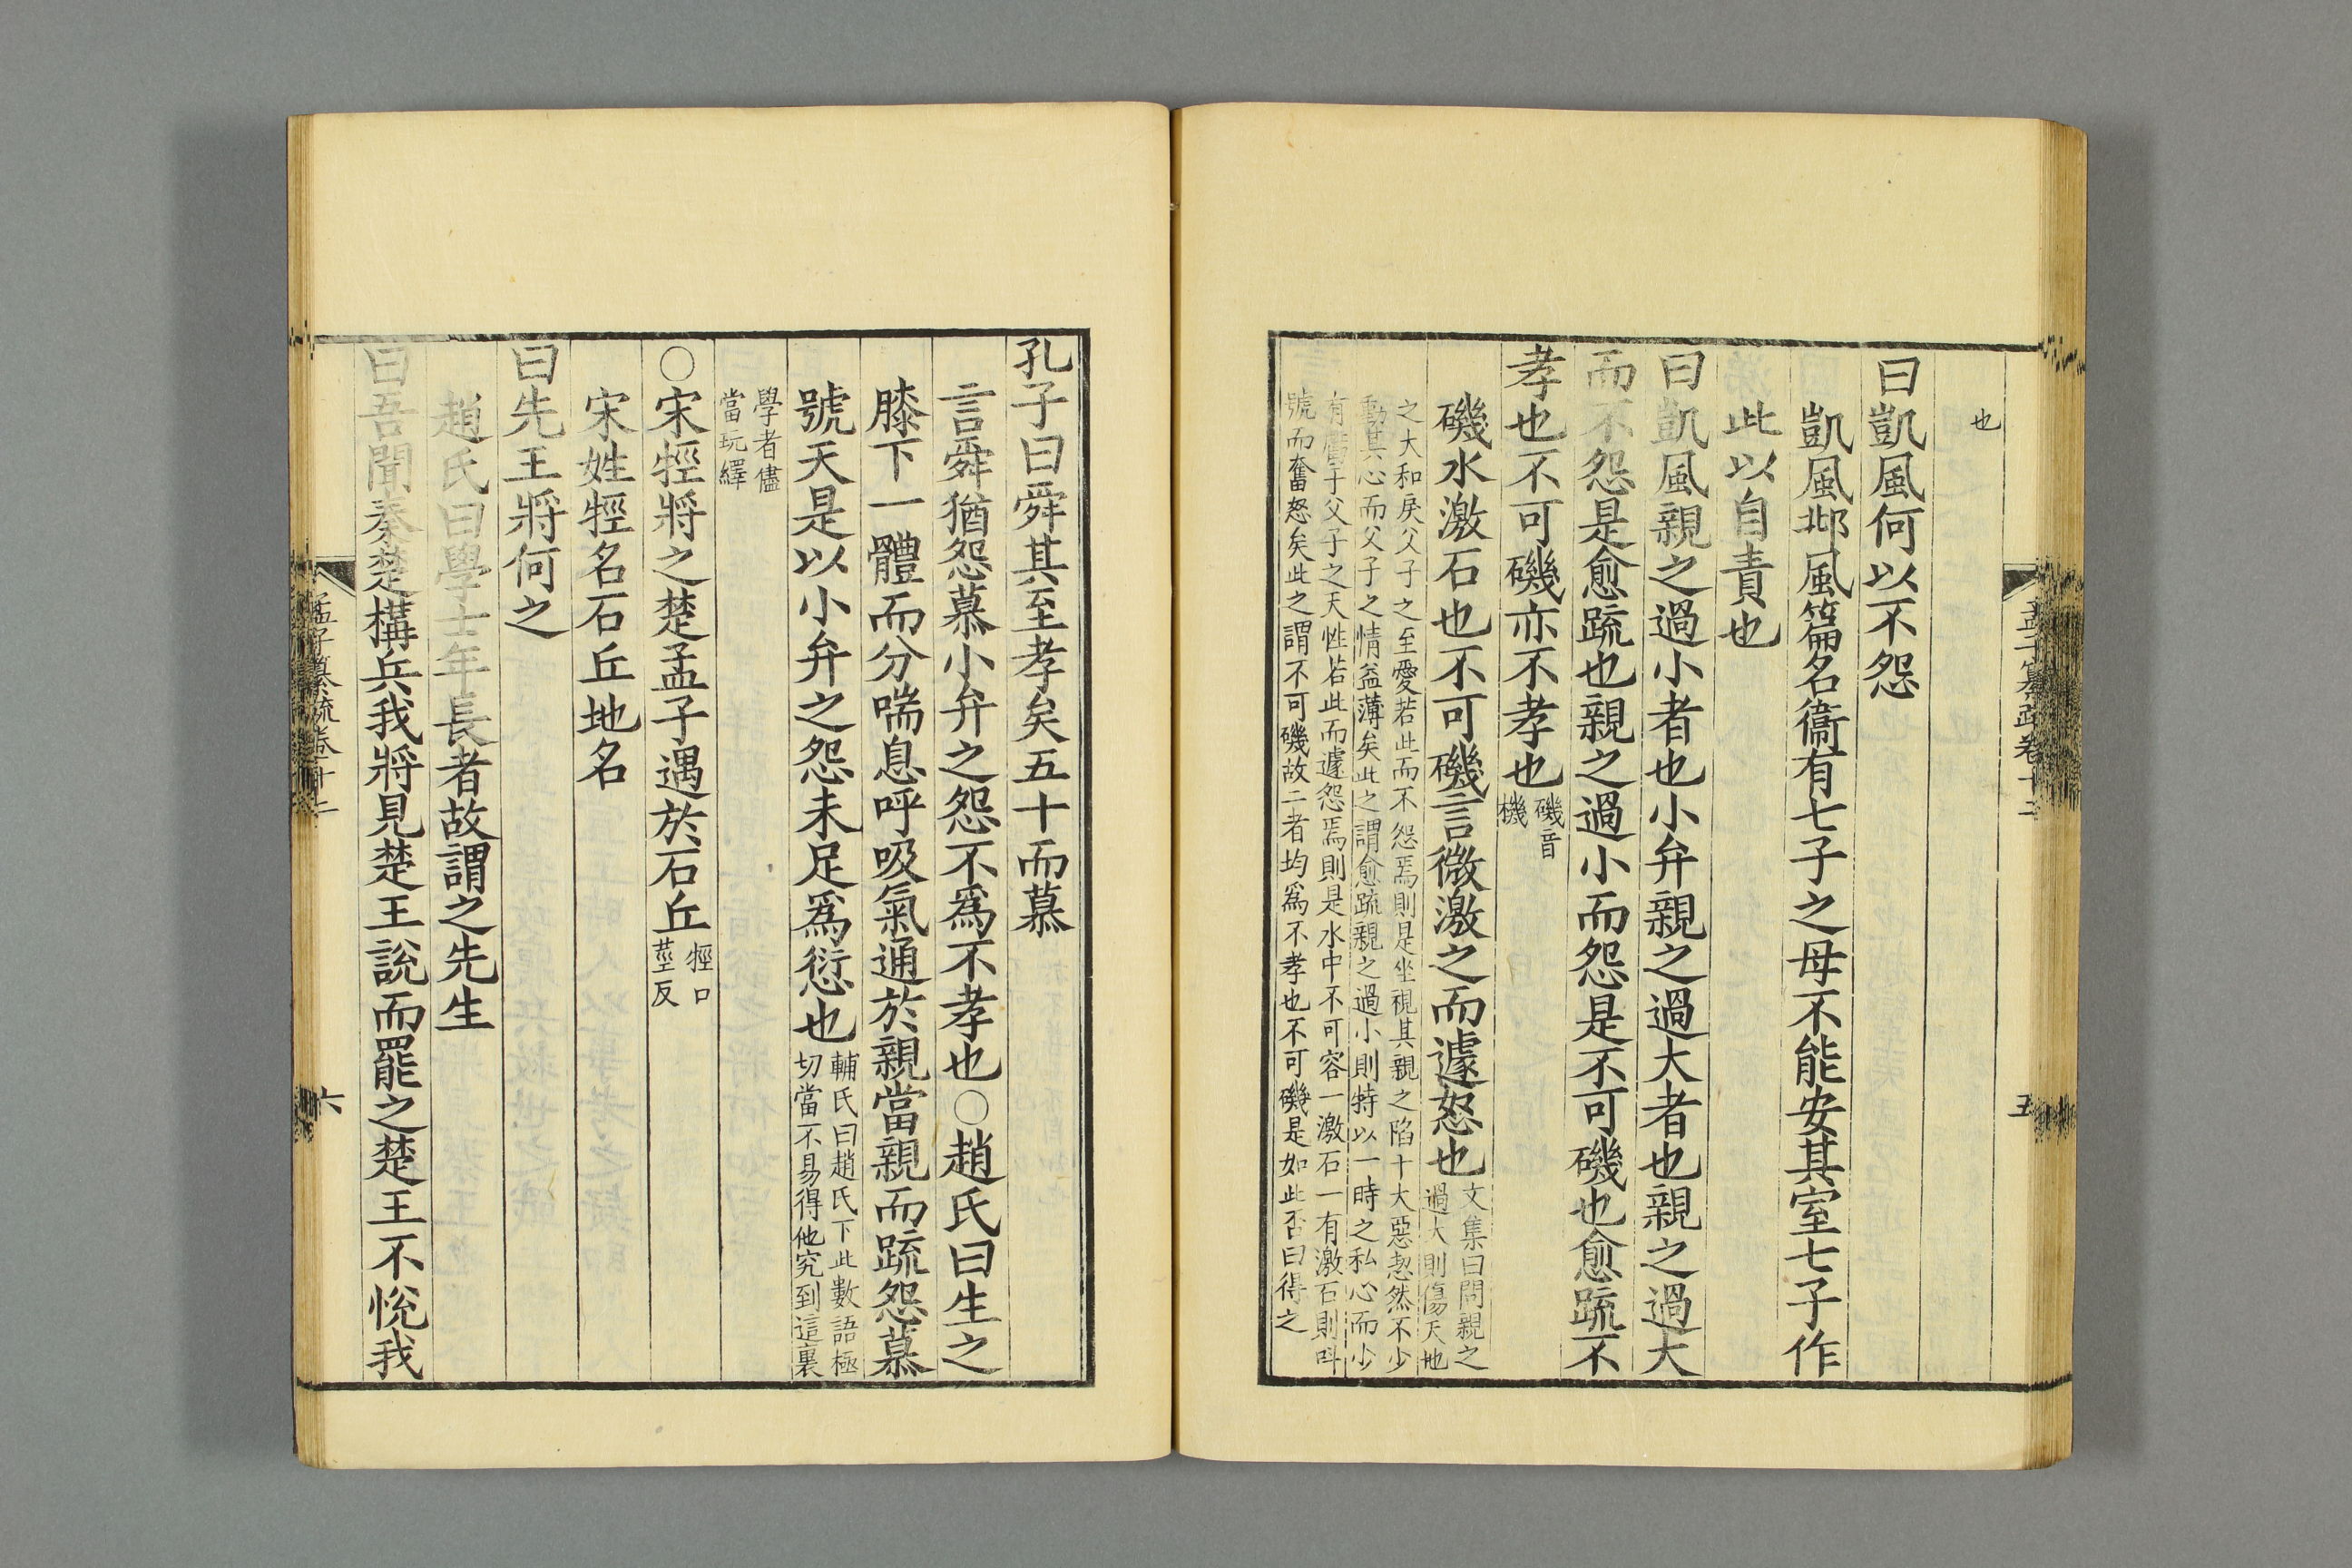 孟子纂疏卷十二
五
也
曰凱風何以不怨
凱風邶風篇名衞有七子之母不能安其室七子作
此以自責也
曰凱風親之過小者也小弁親之過大者也親之過大
而不怨是愈疏也親之過小而怨是不可磯也愈疏不
孝也不可磯亦不孝也
磯音
機
磯水激石也不可磯言微激之而遽怒也
文集曰問親之
過大則傷天地
之大和戾父子之至愛若此而不怨焉則是坐視其親之陷十大惡恝然不少
動其心而父子之情益薄矣此之謂愈疏親之過小則特以一時之私心而少
有虧于父子之天性若此而遽怨焉則是水中不可容一激石一有激石則叫
號而奮怒矣此之謂不可磯故二者均爲不孝也不可磯是如此否曰得之
孔子曰舜其至孝矣五十而慕
言舜猶怨慕小弁之怨不爲不孝也○趙氏曰生之
膝下一體而分喘息呼吸氣通於親當親而疏怨慕
號天是以小弁之怨未足爲愆也
輔氏曰趙氏下此數語極
切當不易得他究到這裏
學者儘
當玩繹
○宋牼將之楚孟子遇於石丘
牼口
莖反
宋姓牼名石丘地名
曰先王將何之
趙氏曰學士年長者故謂之先生
曰吾聞秦楚構兵我將見楚王說而罷之楚王不悅我
孟子纂疏卷十二
六